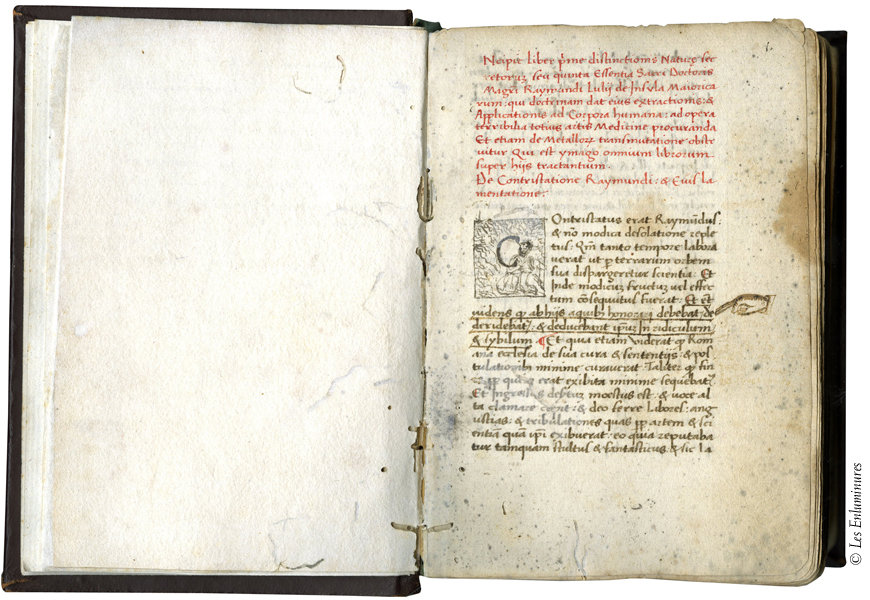 Ncipit liber p̄me distinctionis Nature sec
retorum seu quinta Essentia Sacri Doctoris
Magri Raymundi Lulij de Insula Maiorica
rum: qui doctrinam dat eius extractionis: &
Applicationis ad Corpora humana: ad opera
terribilia totius artis Medicine procuranda
Et etiam de Metallorꝝ transmutatione obstr
uitur Qui est ymago omnium librorum
super hijs tractantium.
De Contristatione Raymundi: & Eius la
mentatione:
C
Ontristatus erat Raymūdus:
& nō modica desolatione reple
tus: Qm̄ tanto tempore labora
uerat ut p terrarum orbem
sua dispargeretur scientia: Et
Inde modicūz fructuz uel effec
tum cōsequutus fuerat: Et et
uidens q abhijs aquibꝫ honorari debebat de
deridebatʳ: & deducebant ipm̄ In ridiculum
& sybilum ¶ Et quia etiam uiderat q Rom
ana ecclesia de sua cura & sententijs & pos
tulationibꝫ minime curauerat Taliter q fin
erat exibita minime sequebatʳ
Et Ingressus moestus est: & uoce al
ta clamare cepit: & deo ferre Labores: ang
ustias: & tribulationes quas ꝓp artem & sci
entiam quam ipi exibuerat: eo quia reputaba
tur tamquam stultus & fantasticus & sic la
© Les Enluminures